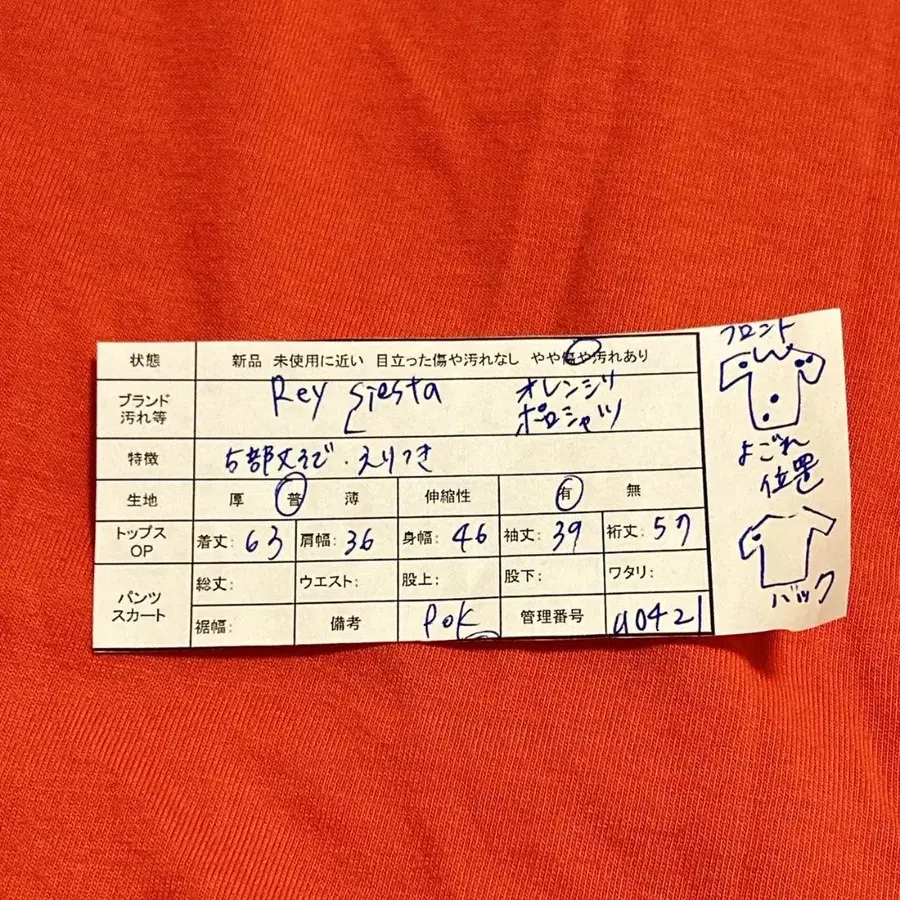 状態 新品 未使用に近い 目立った傷や汚れなし やや傷や汚れあり
ブランド 汚れ等 Rey Siesta オレンジ ポロシャツ
特徴 5部丈そで・えりつき
生地 厚 普 薄 伸縮性 有 無
トップス OP 着丈: 63 肩幅: 36 身幅: 46 袖丈: 39 裄丈: 57
パンツ スカート 総丈: ウエスト: 股上: 股下: ワタリ:
裾幅: 備考 POK 管理番号 a0421
フロント
よごれ
位置
バック